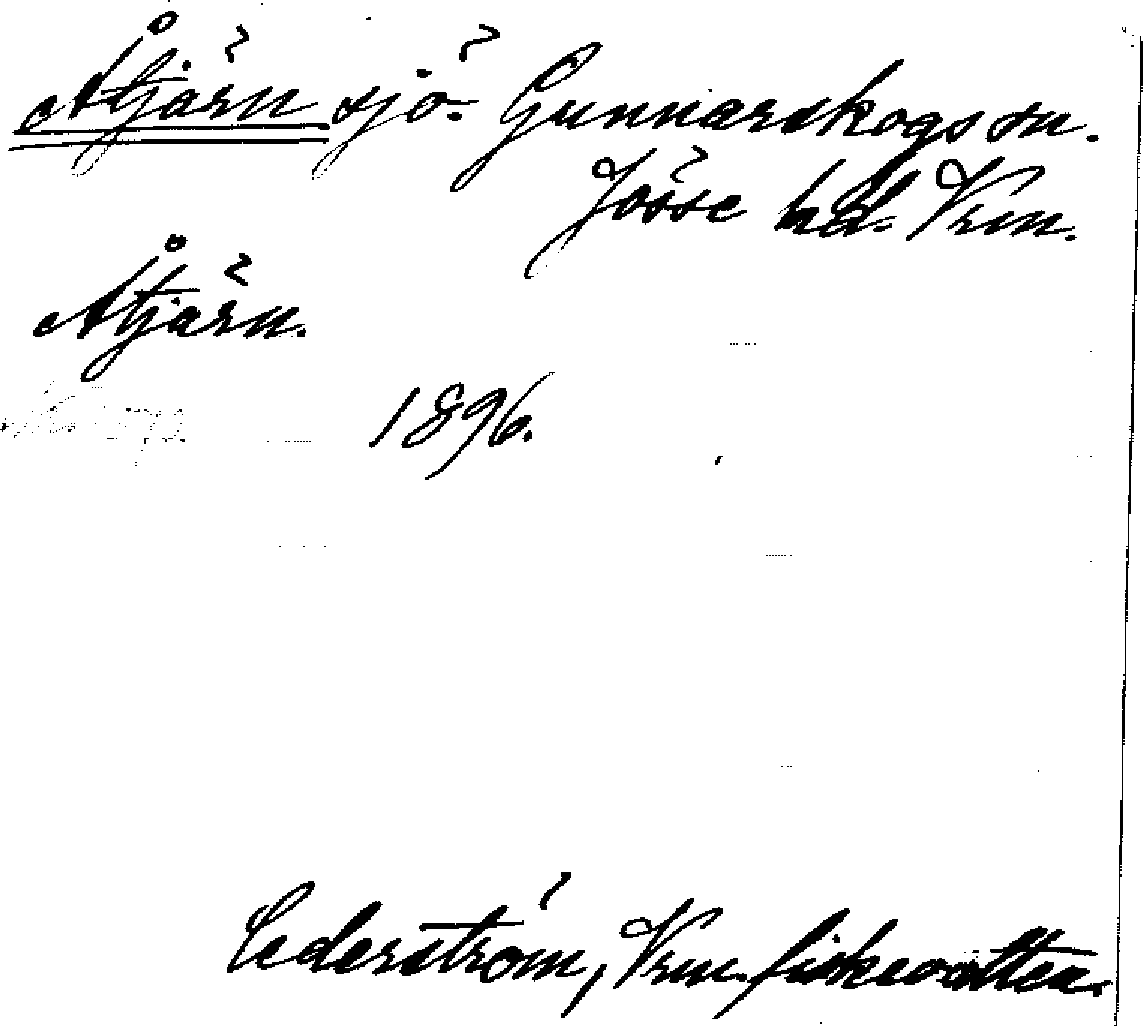 Åtjärn sjö. Gunnarskogs sn.
Jösse hd. Vrm.
Åtjärn.
1896.
Cederström, Vrm. fiskevatten.